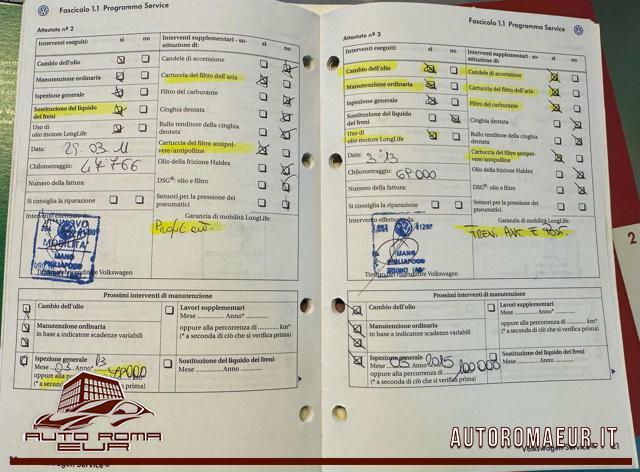 Fascicolo 1.1 Programma Service
Attestato nº 2
Interventi eseguiti: sì no
Interventi supplementari - sostituzione di: sì no
Cambio dell'olio
Manutenzione ordinaria
Ispezione generale
Sostituzione del liquido dei freni
Uso di olio motore LongLife
Data: 29.03.11
Chilometraggio: 47766
Numero della fattura:
Si consiglia la riparazione
Candele di accensione
Cartuccia del filtro dell'aria
Filtro del carburante
Cinghia dentata
Rullo tenditore della cinghia dentata
Cartuccia del filtro antipolvere/antipolline
Olio della frizione Haldex
DSG®: olio e filtro
Sensori per la pressione dei pneumatici
Intervento effettuato da:
Garanzia di mobilità LongLife:
MOBILITA
Timbro del rivenditore Volkswagen
Prossimi interventi di manutenzione
Cambio dell'olio
Manutenzione ordinaria
in base a indicatore scadenze variabili
Ispezione generale
Mese 03 Anno* 13
oppure alla
(* a seconda prima)
Lavori supplementari
Mese Anno*
oppure alla percorrenza di km*
(* a seconda di ciò che si verifica prima)
Sostituzione del liquido dei freni
Mese Anno
Fascicolo 1.1 Programma Service
Attestato nº 3
Interventi eseguiti: sì no
Interventi supplementari - sostituzione di: sì no
Cambio dell'olio
Manutenzione ordinaria
Ispezione generale
Sostituzione del liquido dei freni
Uso di olio motore LongLife
Data: 3.13
Chilometraggio: 69.000
Numero della fattura:
Si consiglia la riparazione
Candele di accensione
Cartuccia del filtro dell'aria
Filtro del carburante
Cinghia dentata
Rullo tenditore della cinghia dentata
Cartuccia del filtro antipolvere/antipolline
Olio della frizione Haldex
DSG®: olio e filtro
Sensori per la pressione dei pneumatici
Intervento effettuato da:
Garanzia di mobilità LongLife:
FRENI ANT. E POST.
Volkswagen
Prossimi interventi di manutenzione
Cambio dell'olio
Manutenzione ordinaria
in base a indicatore scadenze variabili
Ispezione generale
Mese 03 Anno 2015
oppure alla percorrenza di 100000
(* a seconda di ciò che si verifica prima)
Lavori supplementari
Mese Anno*
oppure alla percorrenza di km*
(* a seconda di ciò che si verifica prima)
Sostituzione del liquido dei freni
Mese Anno
2
AUTO ROMA
EUR
Volkswagen Service
AUTOROMAEUR.IT
21